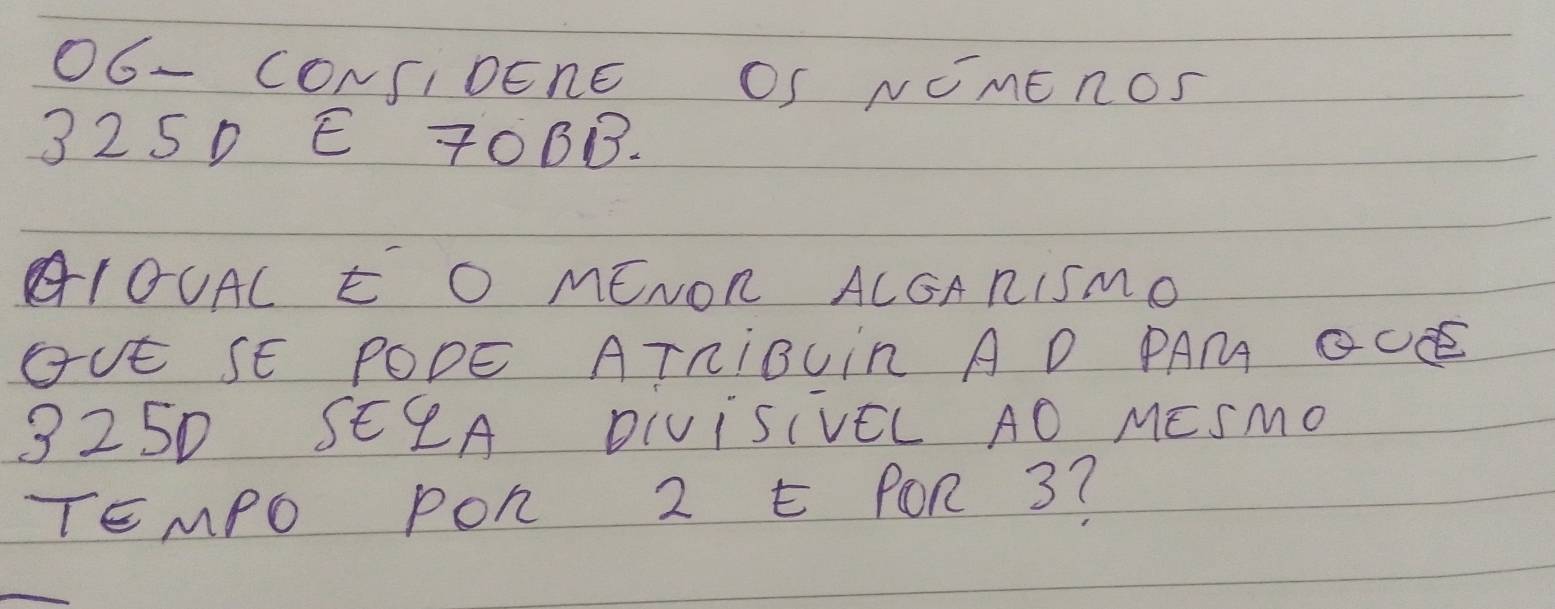 06- CONSIDERE OS NÚMEROS
325D E 70BB.
A) QUAL É O MENOR ALGARISMO
QUE SE PODE ATRIBUIR A D PARA QUE
325D SEJA DIVISÍVEL AO MESMO
TEMPO POR 2 E POR 3?